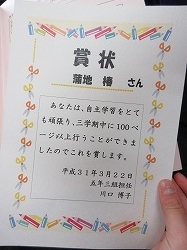 賞状
蒲地 椿 さん
あなたは、自主学習をとて
も頑張り、三学期中に100ペ
ージ以上行うことができま
したのでこれを賞します。
平成31年3月22日
五年三組担任
川口 博子